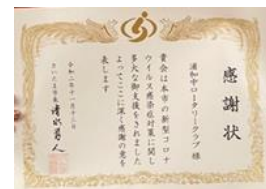 感謝状
浦和中ロータリークラブ 様
貴会は本市の新型コロナ
ウイルス感染症対策に関し
多大な御支援をされました
よってここに深く感謝の意を
表します
令和二年十一月十二日
さいたま市長 清水勇人